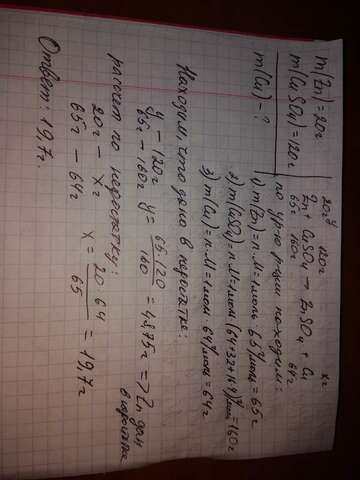 m(Zn) = 20г
m(CuSO₄) = 120г
m(Cu) - ?
20г y 120г xг
Zn + CuSO₄ → ZnSO₄ + Cu
65г 160г 64г
по ур-ю р-ции находим:
1) m(Zn) = n·M = 1моль·65г/моль = 65г
2) m(CuSO₄) = n·M = 1моль·(64+32+16·4)г/моль = 160г
3) m(Cu) = n·M = 1моль·64г/моль = 64г
Находим что дано в недостатке:
y – 120г
65г – 160г y = 65·120 / 160 = 48,75г => Zn дан в недостатке
рассчет по недостатку:
20г – xг
65г – 64г x = 20·64 / 65 = 19,7г
Ответ: 19,7г.